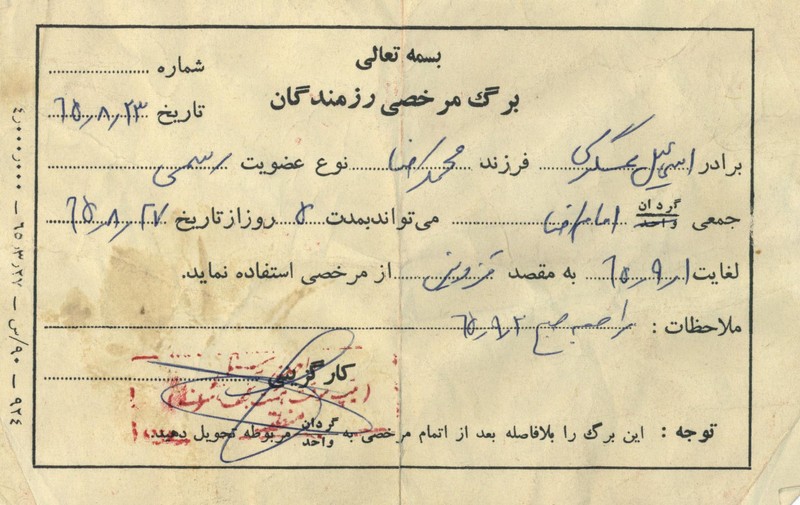 بسمه تعالی
برگ مرخصی رزمندگان
شماره
تاریخ ۶۵٫۸٫۲۳
برادر اسمعیل عسگری فرزند محمدرضا نوع عضویت رسمی
جمعی گردان واحد امام رضا می‌تواند بمدت ۵ روز از تاریخ ۶۵٫۸٫۲۷
لغایت ۶۵٫۹٫۱ به مقصد قزوین از مرخصی استفاده نماید.
ملاحظات : صبح ۶۵٫۹٫۲
کارگزینی
توجه : این برگ را بلافاصله بعد از اتمام مرخصی به گردان واحد مربوطه تحویل دهید.
۹۲۴ – ۹۰/س – ۶۵٫۳٫۲۷ – ۴٫۰۰۰٫۰۰۰